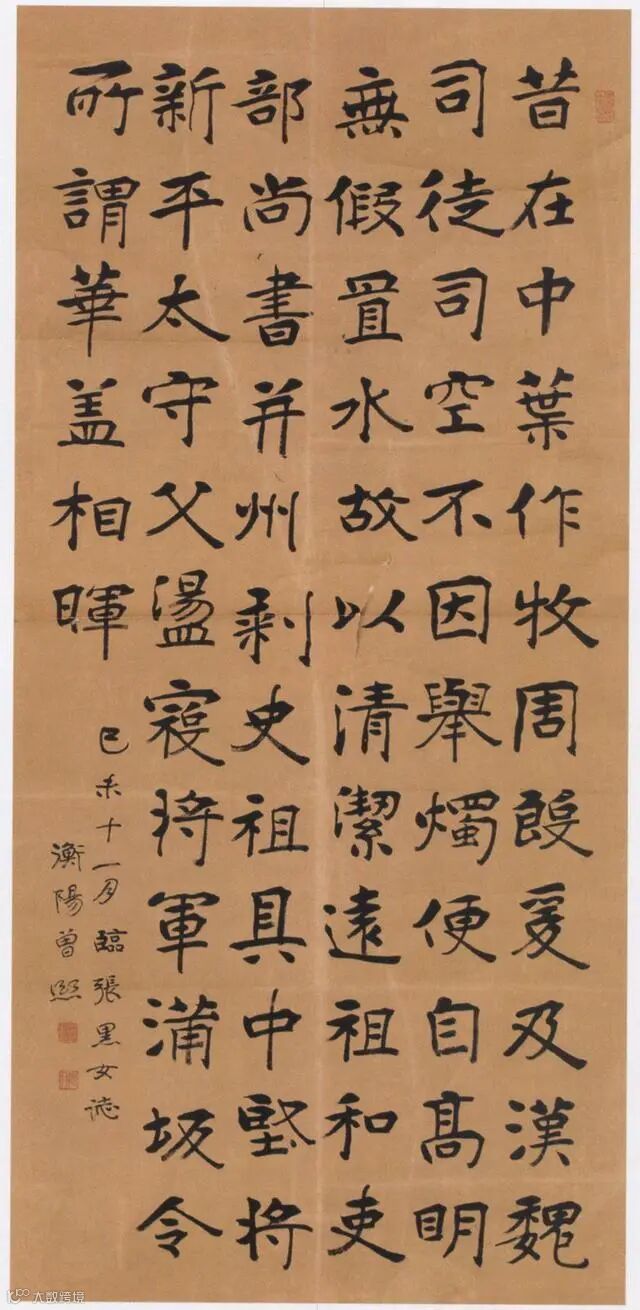 昔在中葉作牧周殷爰及漢魏
司徒司空不因舉燭便自高明
無假置水故以清潔遠祖和吏
部尚書并州刺史祖具中堅將
新平太守父盪寇將軍蒲坂令
所謂華盖相暉
己未十一月臨張黑女誌
衡陽曾熙
大数跨境